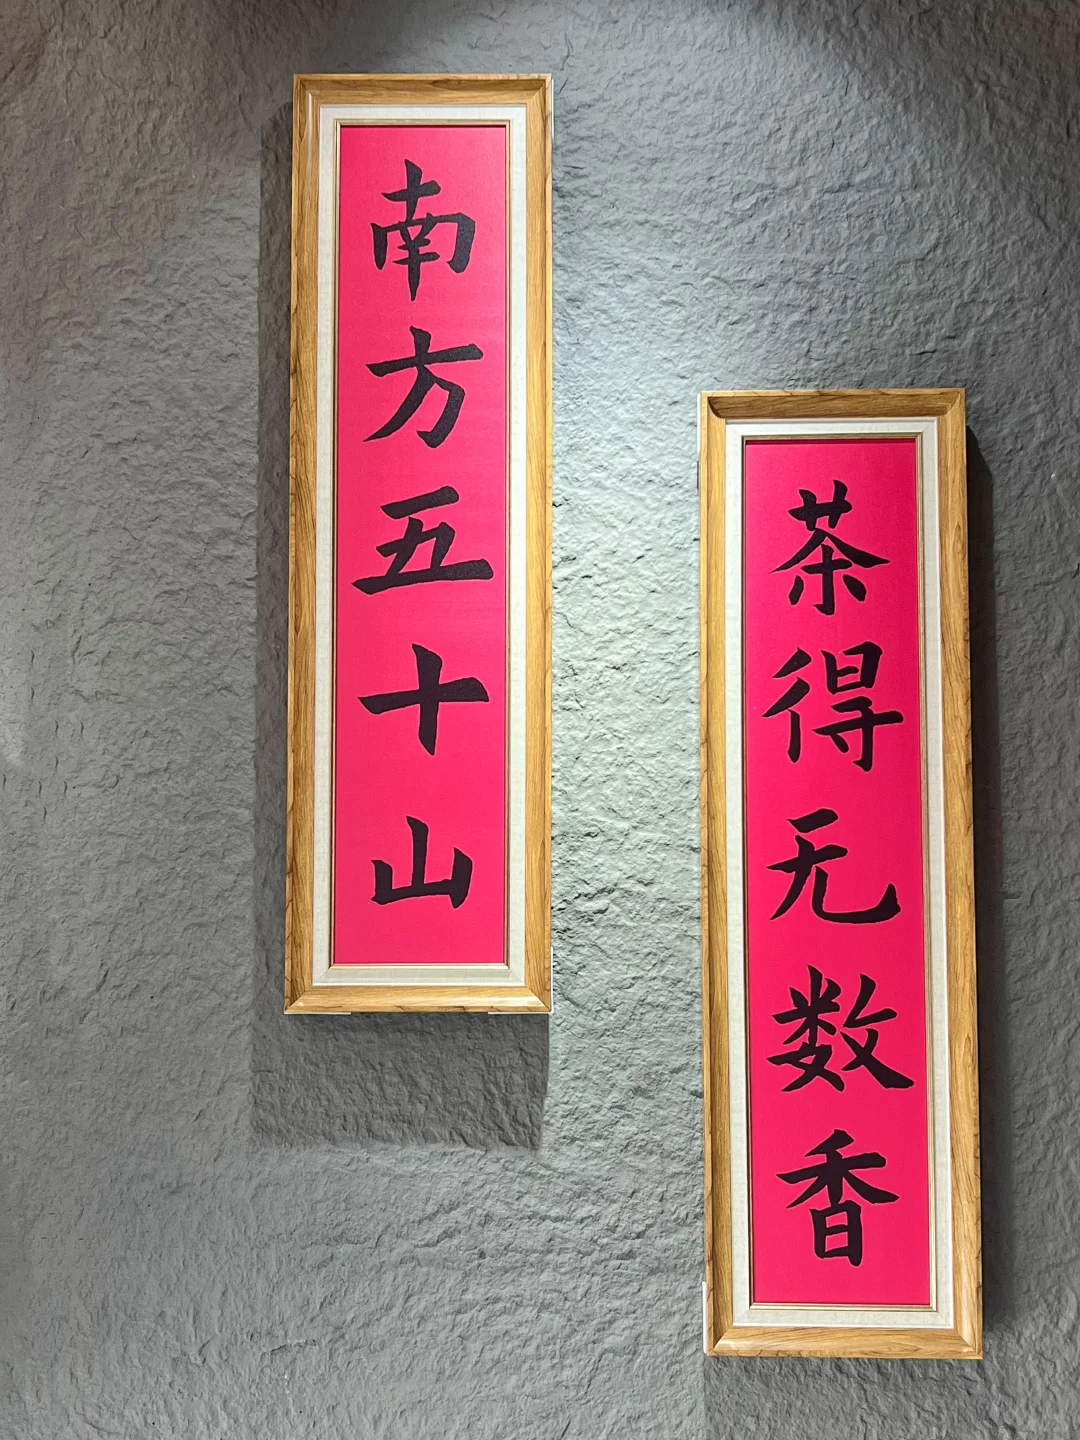 南方五十山
茶得无数香